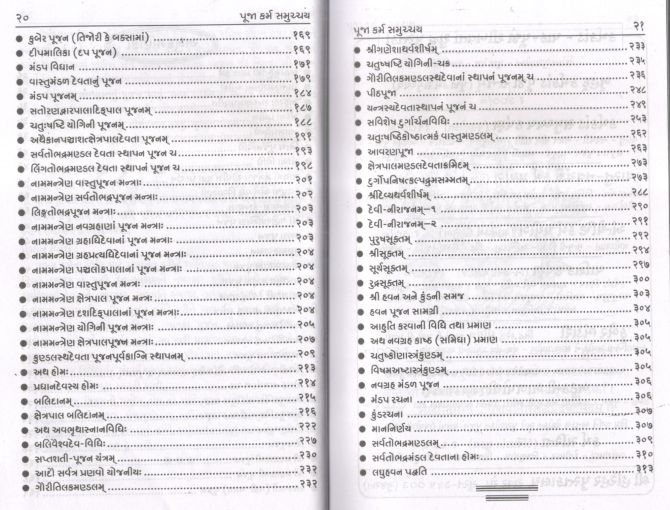 ૨૦ પૂજા કર્મ સમુચ્ચય
કુબેર પૂજન (તિજોરી કે બક્સામાં) ૧૬૯
દીપમાલિકા (દપ પૂજન) ૧૬૯
મંડપ વિધાન ૧૭૧
વાસ્તુમંડળ દેવતાનું પૂજન ૧૭૯
મંડપ પૂજનમ્ ૧૮૪
સતોરણદ્વારપાલાદિક્પાલ પૂજનમ્ ૧૮૭
ચતુઃષષ્ટિ યોગિની પૂજનમ્ ૧૮૮
અથૈકાનપઞ્ચાશત્ક્ષેત્રપાલદેવતા પૂજનમ્ ૧૯૧
સર્વતોભદ્રમણ્ડલ દેવતા સ્થાપન પૂજનં ચ ૧૯૩
લિંગતોભદ્રમણ્ડલ દેવતા સ્થાપનં પૂજનં ચ ૧૯૮
નામમન્ત્રેણ વાસ્તુપૂજન મન્ત્રાઃ ૨૦૧
નામમન્ત્રેણ સર્વતોભદ્રપૂજન મન્ત્રાઃ ૨૦૨
લિઙ્ગતોભદ્રપૂજન મન્ત્રાઃ ૨૦૩
નામમન્ત્રેણ નવગ્રહાણાં પૂજન મન્ત્રાઃ ૨૦૩
નામમન્ત્રેણ ગ્રહાધિદેવાનાં પૂજન મન્ત્રાઃ ૨૦૩
નામમન્ત્રેણ ગ્રહપ્રત્યધિદેવાનાં પૂજન મન્ત્રાઃ ૨૦૪
નામમન્ત્રેણ પઞ્ચલોકપાલાનાં પૂજન મન્ત્રાઃ ૨૦૪
નામમન્ત્રેણ વાસ્તુપૂજન મન્ત્રઃ ૨૦૪
નામમન્ત્રેણ ક્ષેત્રપાલ પૂજન મન્ત્રઃ ૨૦૪
નામમન્ત્રેણ દશદિક્પાલાનાં પૂજન મન્ત્રાઃ ૨૦૪
નામમન્ત્રેણ યોગિની પૂજન મન્ત્રાઃ ૨૦૫
નામમન્ત્રેણ ક્ષેત્રપાલપૂજન મન્ત્રાઃ ૨૦૭
કુણ્ડલસ્થદેવતા પૂજનપૂર્વકાગ્નિ સ્થાપનમ્ ૨૦૯
અથ હોમઃ ૨૧૩
પ્રધાનદેવસ્ય હોમઃ ૨૧૪
બલિદાનમ્ ૨૧૫
ક્ષેત્રપાલ બલિદાનમ્ ૨૧૬
અથ અવભૃથાસ્નાનવિધિઃ ૨૨૨
બલિવૈશ્વદેવ-વિધિઃ ૨૨૭
સપ્તશતી-પૂજન યંત્રમ્ ૨૩૦
આદૌ સર્વત્ર પ્રણવો યોજનીયઃ ૨૩૨
ગૌરીતિલકમણ્ડલમ્ ૨૩૨
પૂજા કર્મ સમુચ્ચય ૨૧
શ્રીગણેશાથર્વશીર્ષમ્ ૨૩૩
ચતુઃષષ્ટિ યોગિની-ચક્ર ૨૩૫
ગૌરીતિલકમણ્ડલસ્થદેવાનાં સ્થાપનં પૂજનમ્ ચ ૨૩૬
પીઠપૂજા ૨૪૮
યન્ત્રસ્થદેવતાસ્થાપનં પૂજનં ચ ૨૪૯
સવિશેષ દુર્ગાર્ચનવિધિઃ ૨૫૩
ચતુઃષષ્ટિકોષ્ઠાત્મકં વાસ્તુમણ્ડલમ્ ૨૬૨
આવરણપૂજા ૨૬૨
ક્ષેત્રપાલમણ્ડલદેવતાક્રમિદમ્ ૨૭૩
દુર્ગોપનિષત્કલ્પદ્રુમસમ્મતમ્ ૨૭૩
શ્રીદેવ્યથર્વશીર્ષમ્ ૨૮૮
દેવી-નીરાજનમ્-૧ ૨૯૦
દેવી-નીરાજનમ્-૨ ૨૯૧
પુરુષસૂક્તમ્ ૨૯૨
શ્રીસૂક્તમ્ ૨૯૪
સૂર્યસૂક્તમ્ ૨૯૭
રુદ્રસૂક્તમ્ ૩૦૦
શ્રી હવન અને કુંડની સમજ ૩૦૩
હવન પૂજન સામગ્રી ૩૦૪
આહુતિ કરવાની વિધિ તથા પ્રમાણ ૩૦૫
અથ નવગ્રહ કાષ્ઠ (સમિધા) પ્રમાણ ૩૦૫
ચતુષ્કોણાસ્ત્રંકુણ્ડમ્ ૩૦૫
વિષમઅષ્ટાસ્ત્રંકુણ્ડમ્ ૩૦૫
નવગ્રહ મંડળ પૂજન ૩૦૬
મંડપ રચના ૩૦૬
કુંડરચના ૩૦૭
માનનિર્ણય ૩૦૭
સર્વતોભદ્રમણ્ડલમ્ ૩૦૯
સર્વતોભદ્રમંડલ દેવતાના હોમઃ ૩૧૦
લઘુહવન પદ્ધતિ ૩૧૩